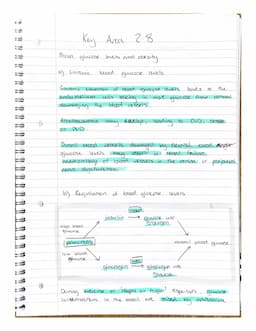 Key Area 2.8
Blood glucose levels and obesity
a) Chronic blood glucose levels
Chronic elevation of blood glucose levels leads to the
endothelium cells taking in more glucose than normal
damaging the blood vessels.
Atherosclerosis may develop, leading to CVD, stroke
or PVD.
blood vessels damaged by elevated
glucose levels may result in
of blood vessels in the retina or peripheral
nerve dysfunction.
b) Regulation of blood glucose levels
high blood
glucose
insulin
glucose
glycogen
pancreas
normal blood glucose
low blood
glucose
glucagon
glycogen
glucose
During exercise or fight or flight responses, glucose
concentrations in the blood are raised by adrenaline